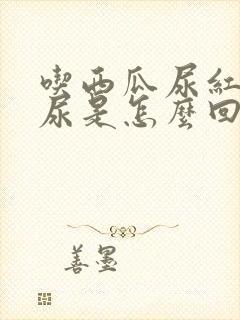 喫西瓜尿紅
尿是怎麼回
善墨